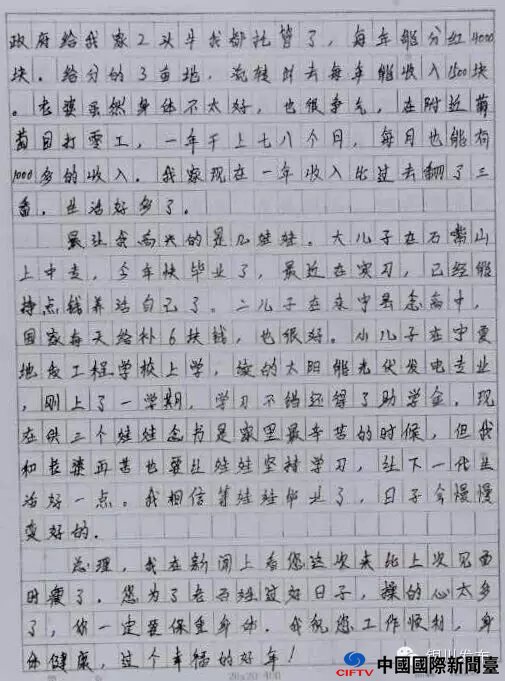 政府给我家2头牛我都托管了，每年能分红4000
块．给分的3亩地，流转出去每年能收入1500块
。老婆虽然身体不太好，也很争气，在附近葡
萄园打零工，一年干上七八个月，每月也能有
1000多的收入．我家现在一年收入比过去翻了三
番．生活好多了．
最让我高兴的是几娃娃．大儿子在石嘴山
上中专，今年快毕业了，最近在实习，已经能
挣点钱养活自己了．二儿子在永宁县念高中，
国家每天给补6块钱，也很好．小儿子在宁夏
地质工程学校上学，读的太阳能光伏发电专业
，刚上了一学期，学习不错还得了助学金．现
在供三个娃娃念书是家里最辛苦的时候，但我
和老婆再苦也要让娃娃坚持学习，让下一代生
活好一点．我相信等娃娃毕业了，日子会慢慢
变好的．
总理，我在新闻上看您这次来比上次见面
时瘦了．您为了老百姓过好日子，操的心太多
了，你一定要保重身体．我祝您工作顺利，身
体健康，过个幸福的好年！
20×20=400
银川发布
CIFTV 中國國際新聞臺